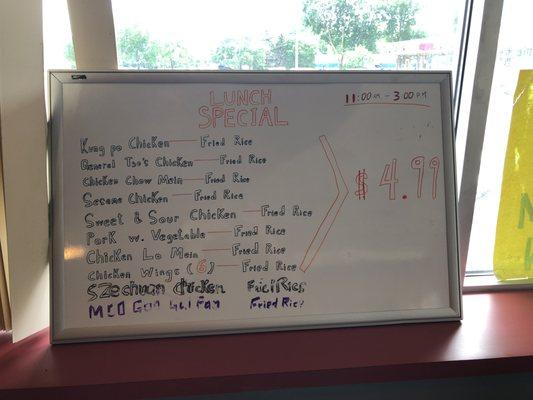 LUNCH
SPECIAL
11:00 AM - 3:00 P.M
Kung po Chicken — Fried Rice
General Tso's Chicken — Fried Rice
Chicken Chow Mein — Fried Rice
Sesame Chicken — Fried Rice
Sweet & Sour Chicken — Fried Rice
Pork w. Vegetable — Fried Rice
Chicken Lo Mein — Fried Rice
Chicken Wings (6) — Fried Rice
$ 4.99
SZechuan chicken Fried Rice
Moo Goo Gai Pan Fried Rice